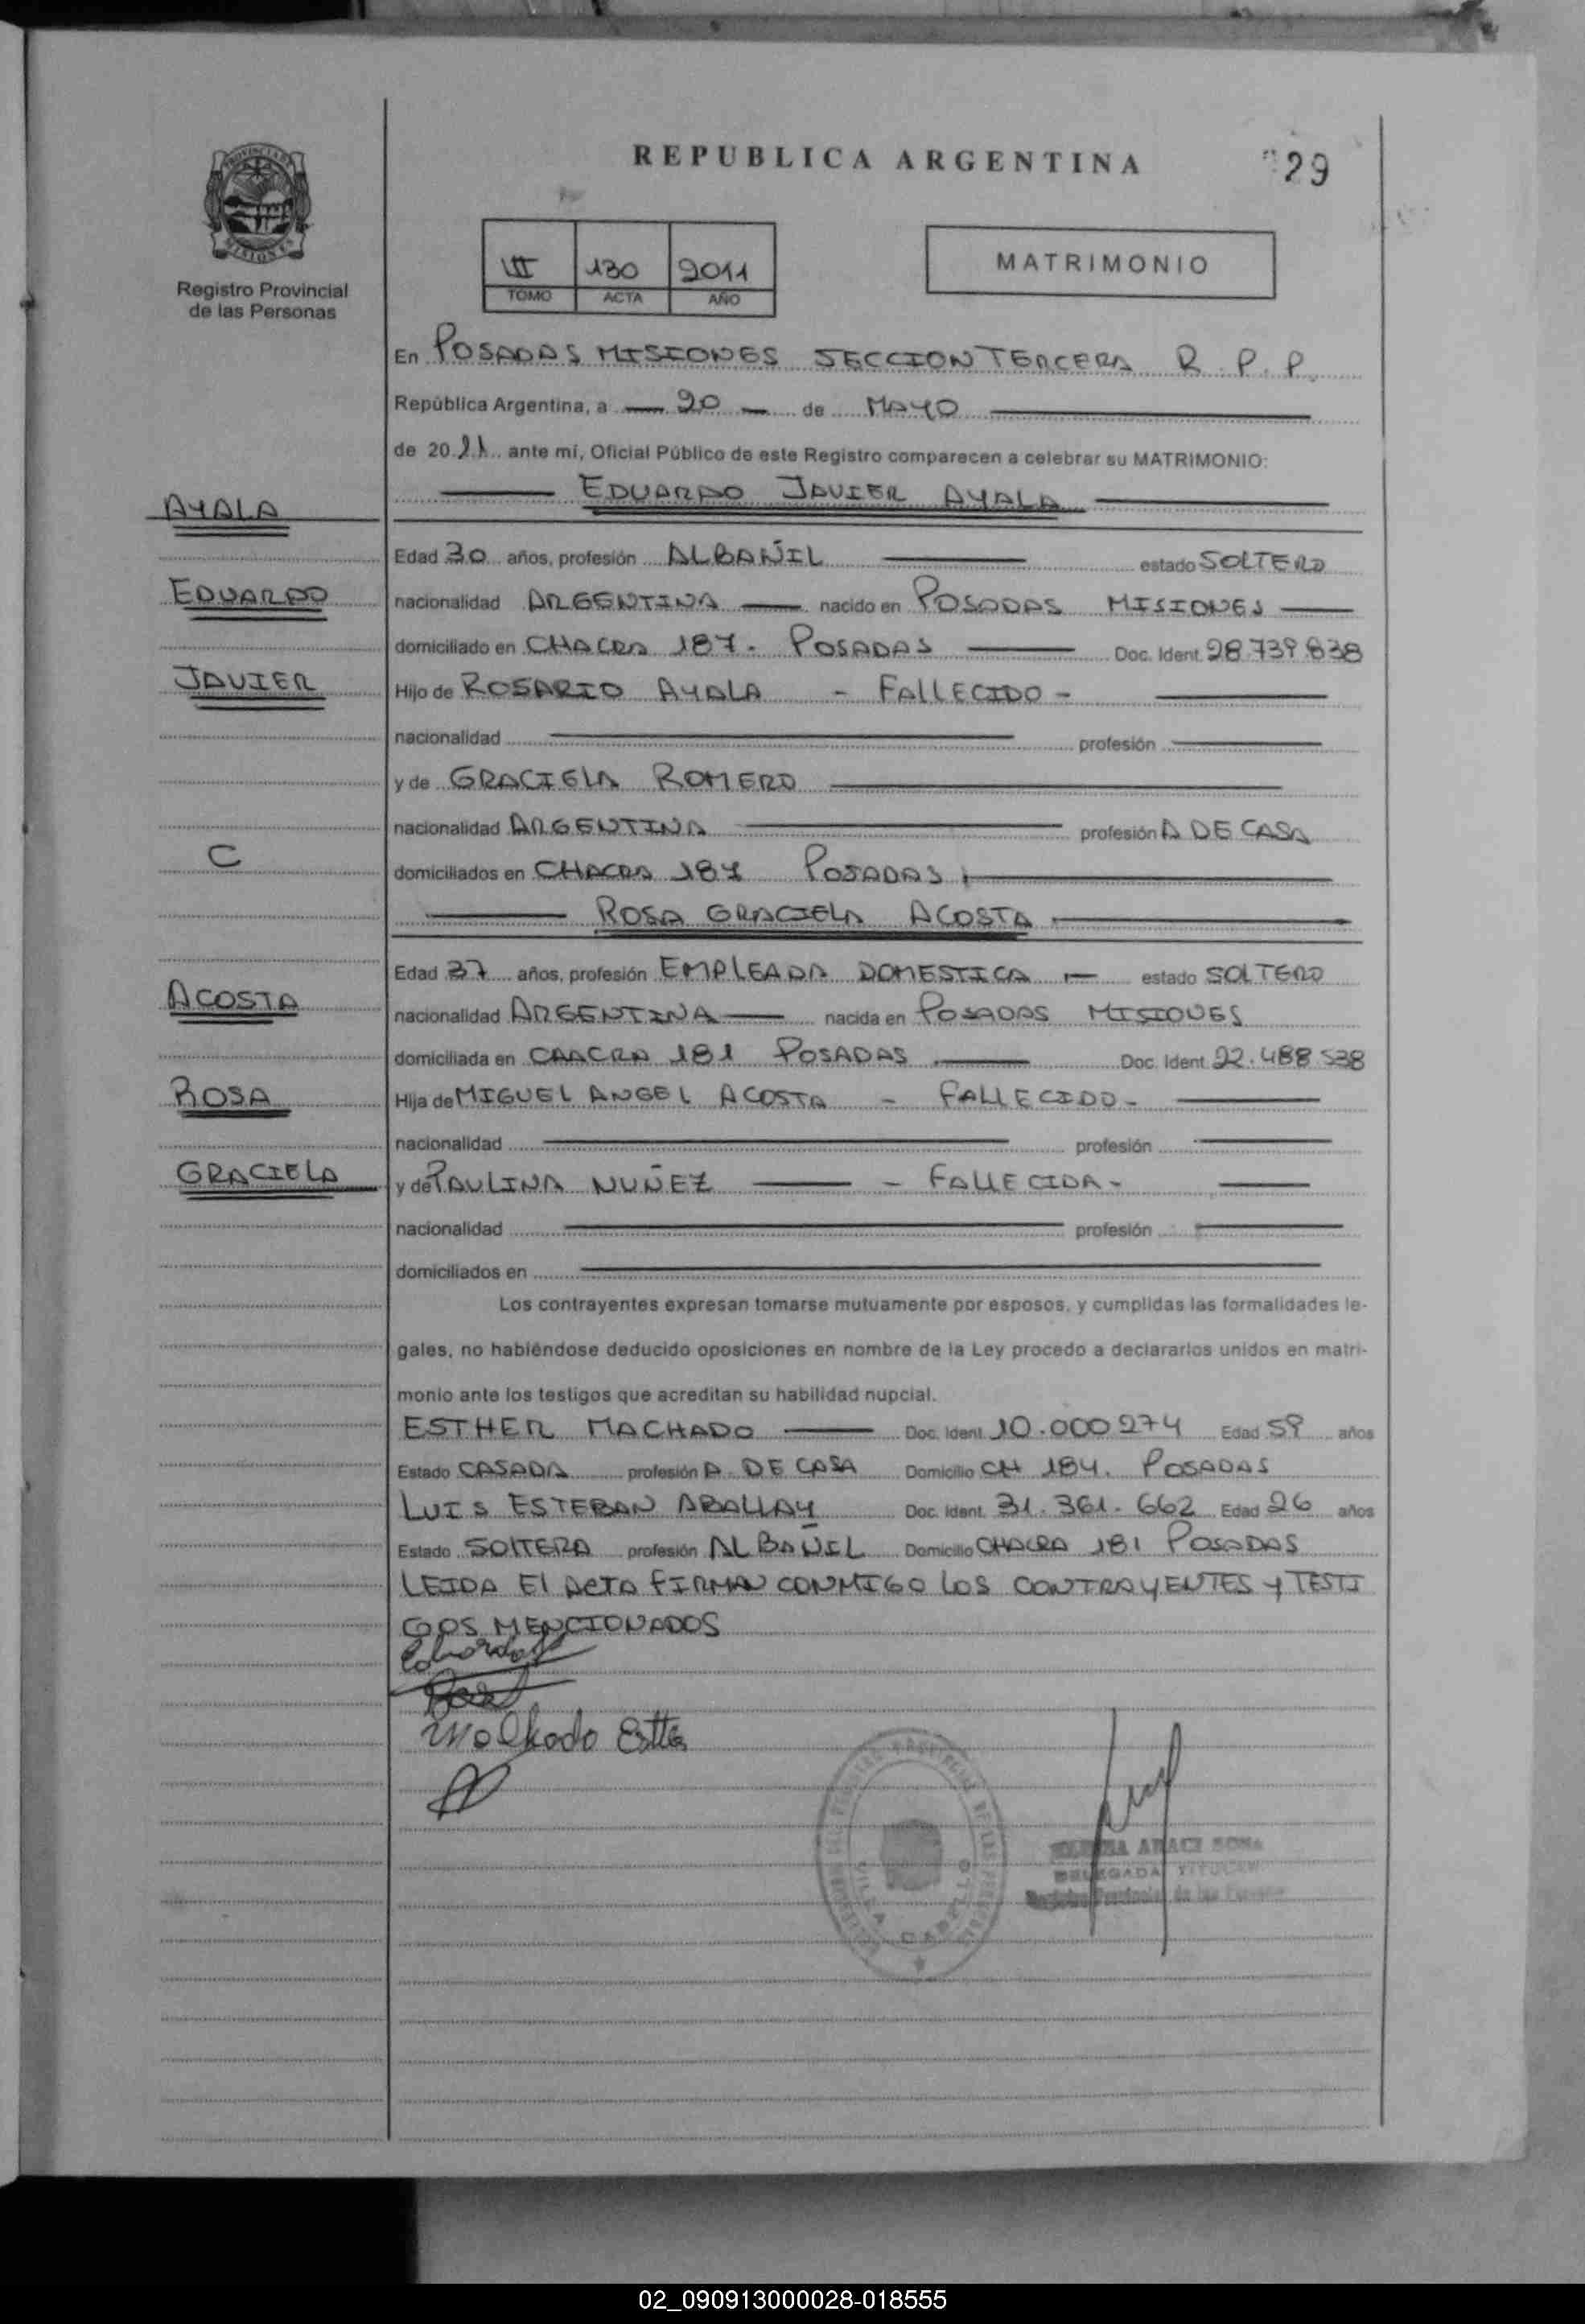 REPUBLICA ARGENTINA
29
PROVINCIA DE MISIONES
Registro Provincial
de las Personas
III 130 2011
TOMO ACTA AÑO
MATRIMONIO
En POSADAS MISIONES SECCION TERCERA R.P.P.
República Argentina, a 20 de MAYO
de 2011 ante mí, Oficial Público de este Registro comparecen a celebrar su MATRIMONIO:
AYALA
EDUARDO JAVIER AYALA
Edad 30 años, profesión ALBAÑIL estado SOLTERO
EDUARDO
nacionalidad ARGENTINA nacido en POSADAS MISIONES
domiciliado en CHACRA 187 - POSADAS Doc. Ident. 28.739.838
JAVIER
Hijo de ROSARIO AYALA - FALLECIDO -
nacionalidad profesión
y de GRACIELA ROMERO
nacionalidad ARGENTINA profesión A DE CASA
C
domiciliados en CHACRA 187 POSADAS
ROSA GRACIELA ACOSTA
Edad 37 años, profesión EMPLEADA DOMESTICA estado SOLTERO
ACOSTA
nacionalidad ARGENTINA nacida en POSADAS MISIONES
domiciliada en CAACRA 181 POSADAS Doc. Ident. 22.488.538
ROSA
Hija de MIGUEL ANGEL ACOSTA - FALLECIDO -
nacionalidad profesión
GRACIELA
y de PAULINA NUÑEZ - FALLECIDA -
nacionalidad profesión
domiciliados en
Los contrayentes expresan tomarse mutuamente por esposos, y cumplidas las formalidades le-
gales, no habiéndose deducido oposiciones en nombre de la Ley procedo a declararlos unidos en matri-
monio ante los testigos que acreditan su habilidad nupcial.
ESTHER MACHADO Doc. Ident. 10.000274 Edad 59 años
Estado CASADA profesión A DE CASA Domicilio CH 184. POSADAS
LUIS ESTEBAN ABALLAY Doc. Ident. 31.361.662 Edad 26 años
Estado SOLTERA profesión ALBAÑIL Domicilio CHACRA 181 POSADAS
LEIDA El ACTA FIRMAN CONMIGO LOS CONTRAYENTES Y TESTI
GOS MENCIONADOS
ARACI SOSA
DELEGADA TITULAR
Registro Provincial de las Personas
02_090913000028-018555